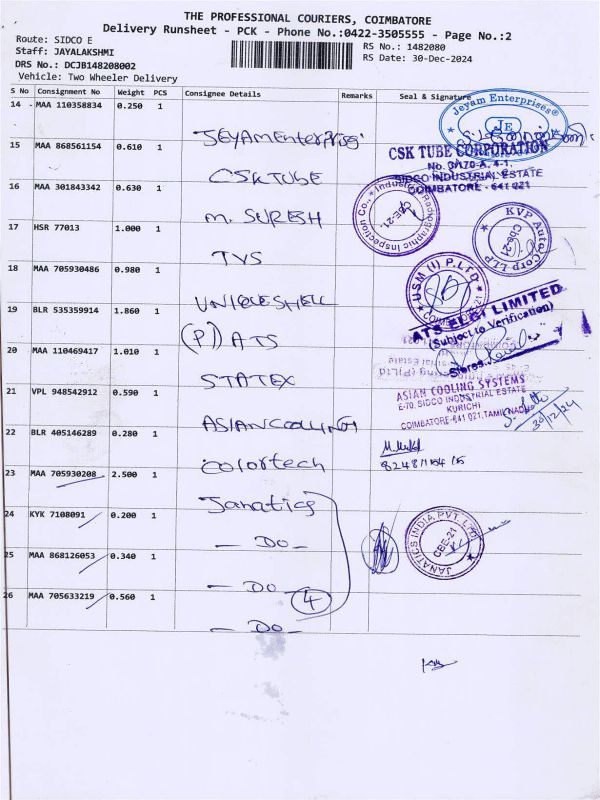 THE PROFESSIONAL COURIERS, COIMBATORE
Delivery Runsheet - PCK - Phone No.:0422-3505555 - Page No.:2
Route: SIDCO E
Staff: JAYALAKSHMI
DRS No.: DCJB148208002
Vehicle: Two Wheeler Delivery
RS No.: 1482080
RS Date: 30-Dec-2024
S No Consignment No Weight PCS Consignee Details Remarks Seal & Signature
14 MAA 110358834 0.250 1 JEYAM Enterprises
Jeyam Enterprises®
JE
15 MAA 868561154 0.610 1 CSK TUBE
CSK TUBE CORPORATION
SIDCO INDUSTRIAL ESTATE
COIMBATORE - 641 021
16 MAA 301843342 0.630 1 M. SURESH
Industrial Radiographic Inspection Co.,
CBE-21.
17 HSR 77013 1.000 1 TVS
KVP Auto Corp LLP
Cbe-21.
18 MAA 705930486 0.980 1 UNIQUESHELL
USM (I) P.LTD
19 BLR 535359914 1.860 1 (P) ATS
ATS ELGI LIMITED
(Subject to Verification)
Stores
20 MAA 110469417 1.010 1 STATEX
21 VPL 948542912 0.590 1 ASIAN COOLING
ASIAN COOLING SYSTEMS
E-70, SIDCO INDUSTRIAL ESTATE
KURICHI
COIMBATORE-641 021, TAMILNADU
30/12/24
22 BLR 405146289 0.280 1 Colortech
23 MAA 705930208 2.500 1 Janatics
24 KYK 7108091 0.200 1 - DO -
JANATICS INDIA PVT. LTD.
CBE-21
25 MAA 868126053 0.340 1 - DO
4
26 MAA 705633219 0.560 1 - DO -